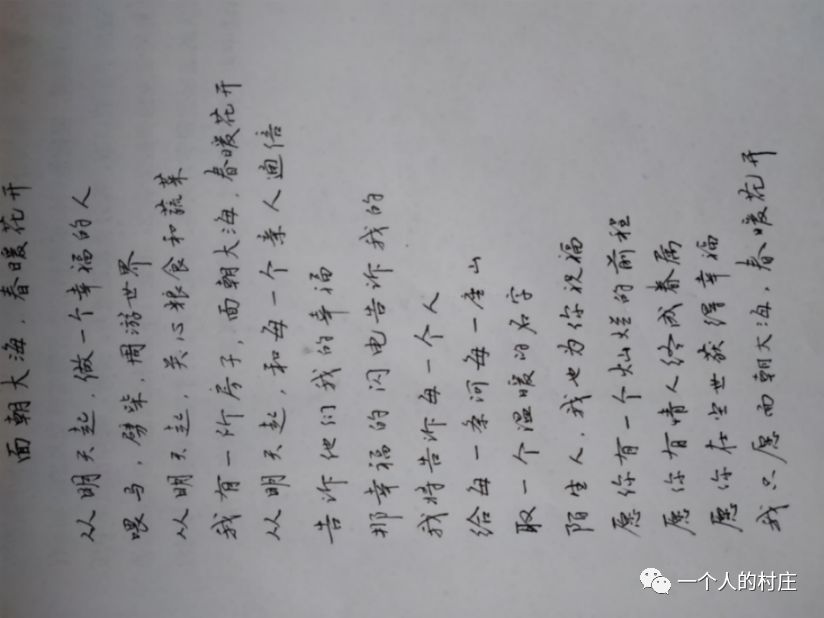 面朝大海，春暖花开
从明天起，做一个幸福的人
喂马，劈柴，周游世界
从明天起，关心粮食和蔬菜
我有一所房子，面朝大海，春暖花开
从明天起，和每一个亲人通信
告诉他们我的幸福
那幸福的闪电告诉我的
我将告诉每一个人
给每一条河每一座山
取一个温暖的名字
陌生人，我也为你祝福
愿你有一个灿烂的前程
愿你有情人终成眷属
愿你在尘世获得幸福
我只愿面朝大海，春暖花开
一个人的村庄